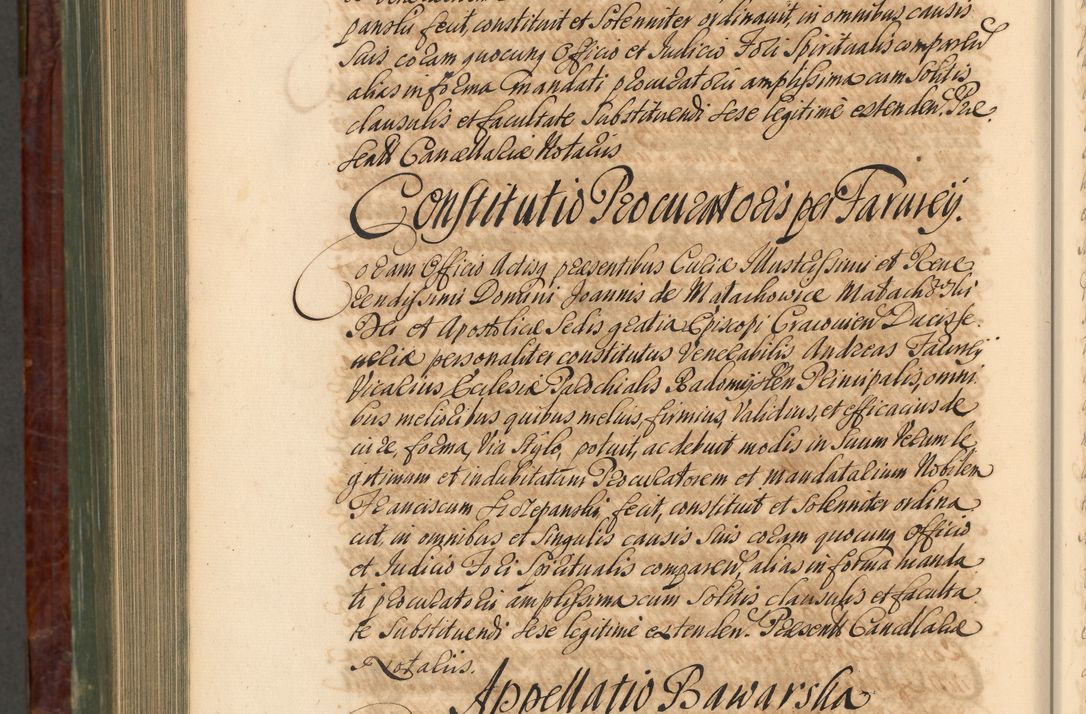 panski fecit, constituit et solenniter ordinavit, in omnibus causis
suis coram quocunq Officio et Judicio Fori Spiritualis comparen
alias in forma mandati procuratorii amplissima cum solitis
clausulis et facultate substituendi sese legitime extenden. Prae
sent Cancellariae Notariis
Constitutio Procuratoris per Farurey.
Coram Officio Actisq praesentibus Curiae Illustrissimi et Reve
rendissimi Domini Joannis de Małachowice Małachowski
Dei et Apostolicae Sedis gratia Episcopi Cracovien Ducis Se
veriae personaliter constitutus Venerabilis Andreas Farurey
Vicarius Ecclesiae Parochialis Radomyslen Principalis, omni
bus melioribus quibus melius, firmius, validius, et efficacius de
iure, forma, via stylo, potuit, ac debuit modis in suum verum le
gitimum et indubitatum Procuratorem et mandatarium Nobilem
Franciscum Szczepanski fecit, constituit et solenniter ordina
vit, in omnibus et singulis causis suis coram quocunq Officio
et Judicio Fori Spiritualis comparen, alias in forma manda
ti procuratorii amplissima cum solitis clausulis et faculta
te substituendi sese legitime extenden. Praesent Cancellariae
Notariis.
Appellatio Bawarska